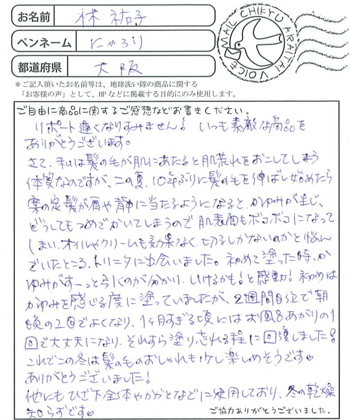 お名前 林 祐子
ペンネーム にゃろり
都道府県 大阪
MAIL CHIKYU ARAITAI VOICE
*ご記入頂いたお名前等は、地球洗い隊の商品に関する
「お客様の声」として、HPなどに掲載する目的にのみ使用します。
ご自由に商品に関するご感想などお書きください。
リポート遅くなりすみません! いつも素敵な商品を
ありがとうございます。
さて、私は髪の毛が肌にあたると肌荒れをおこしてしまう
体質なのですが、この夏、10年ぶりに髪の毛を伸ばし始めたら
案の定髪が肩や背中に当たるようになると、かゆみが生じ、
どうしてもつめでかいてしまうので肌表面もボコボコになって
しまい、オイルやクリームも効果なく、切るしかないのかと悩ん
でいたところ、トリニタに出会いました。初めて塗った時、か
ゆみがすーっと引くのが分かり、いけるかも!と感動! 初めは
かゆみを感じる度に塗っていましたが、2週間目位で朝
晩の2回でよくなり、1ヶ月すぎる頃にはお風呂あがりの1
回で大丈夫になり、それすら塗り忘れる程に回復しました!
これでこの冬は髪の毛のおしゃれも少し楽しめそうです。
ありがとうございました!
他にもひざ下全体やかかとなどに使用しており、冬の乾燥
知らずです。
ご協力ありがとうございました。